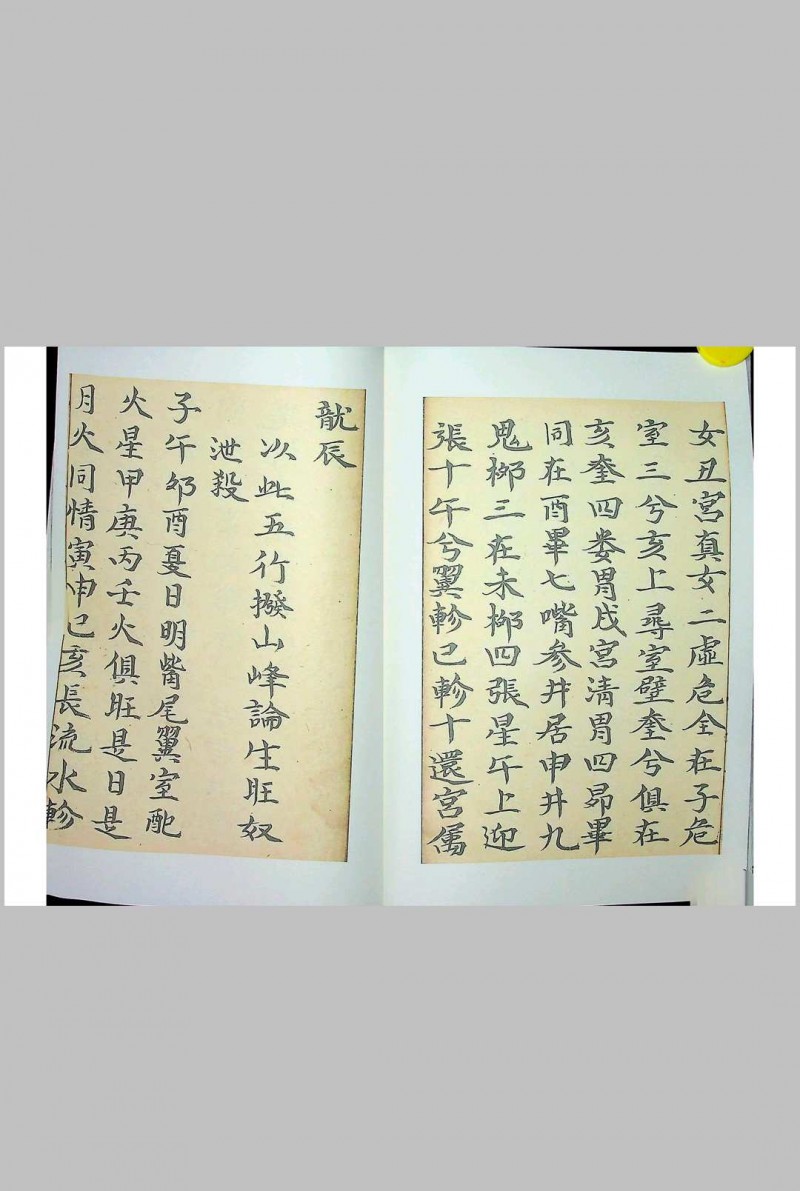 女丑宮真女二虛危全在子危
室三兮亥上尋室壁奎兮俱在
亥奎四娄胃戌宮清胃四昴畢
同在酉畢七嘴参井居申井九
鬼栁三在未栁四張星午上迎
張十午兮翼軫巳軫十還宮屬
龍辰
以此五行撥山峰論生旺奴
泄殺
子午夘酉夏日明觜尾翼室配
火星甲庚丙壬火俱旺是日是
月火同情寅申巳亥長流水軫